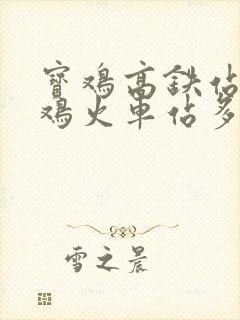 寶鸡高鉄佔
鸡火車佔多
雪之晨